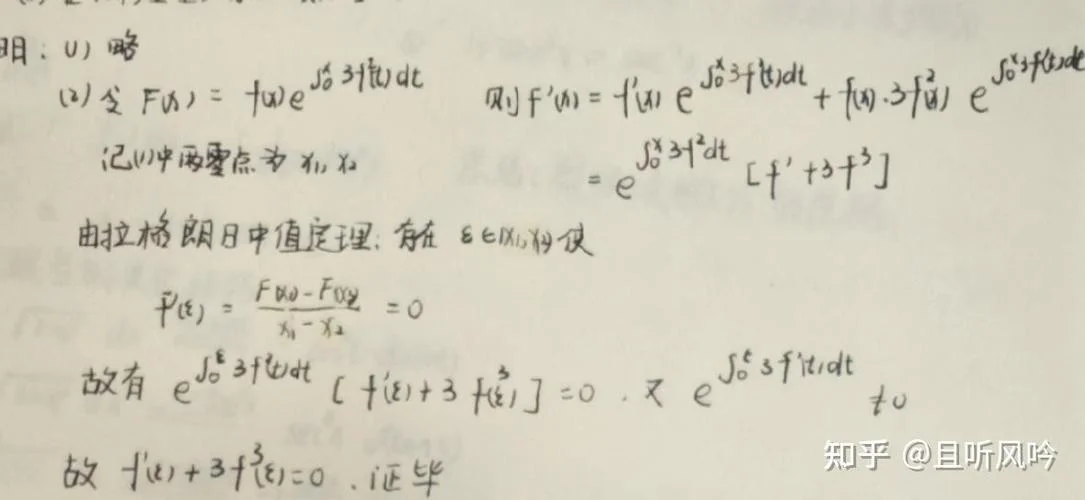 明: (1) 略
(2) 令 F(x) = f(x)e^{∫₀ˣ3f²(t)dt} 则 F'(x) = f'(x) e^{∫₀ˣ3f²(t)dt} + f(x)·3f²(x) e^{∫₀ˣ3f²(t)dt}
记(1)中两零点为 x₁, x₂
= e^{∫₀ˣ3f²dt} [f' + 3f³]
由拉格朗日中值定理: 存在 ε∈(x₁,x₂)使
F'(ε) = \frac{F(x₁)-F(x₂)}{x₁-x₂} = 0
故有 e^{∫₀^ε 3f²(t)dt} [f'(ε)+3f³(ε)] = 0 . 又 e^{∫₀^ε 3f²(t)dt} ≠0
故 f'(ε)+3f³(ε)=0 . 证毕
知乎 @且听风吟